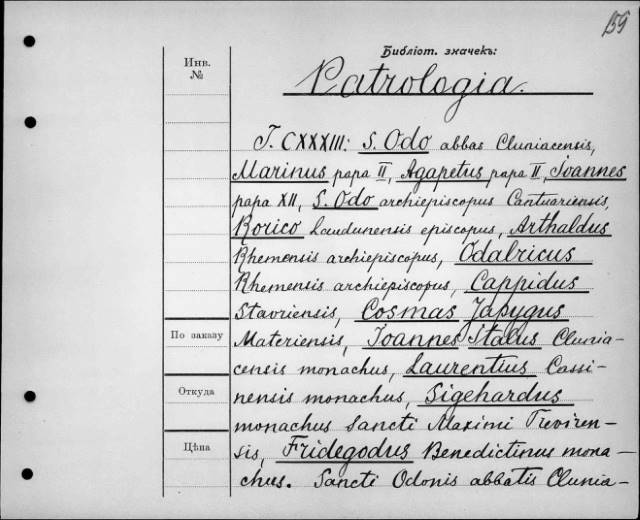 159
Библіот. значекъ:
Инв.
№
Patrologia.
T. CXXXIII: S. Odo abbas Cluniacensis,
Marinus papa II, Agapetus papa II, Joannes
papa XII, S. Odo archiepiscopus Cantuariensis,
Rorico Laudunensis episcopus, Arthaldus
Rhemensis archiepiscopus, Odalricus
Rhemensis archiepiscopus, Cappidus
Stavriensis, Cosmas Japygus
По заказу
Materiensis, Joannes Italus Clunia-
censis monachus, Laurentius Cassi-
Откуда
nensis monachus, Sigehardus
monachus Sancti Maximi Treviren-
Цѣна
sis, Fridegodus Benedictinus mona-
chus. Sancti Odonis abbatis Clunia-